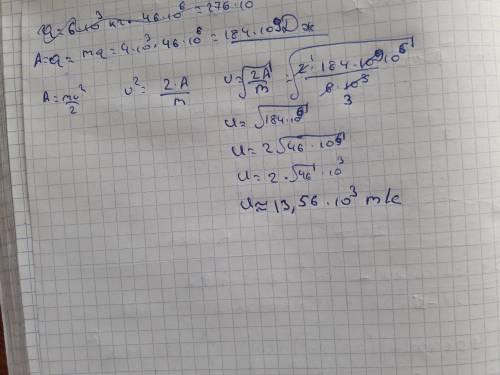 Q = 6·10³ кг · 46·10⁶ = 276·10
A = Q = mq = 4·10³ · 46·10⁶ = 184·10⁹ Дж
A = mυ²/2   υ² = 2·A/m   υ = √(2A/m) = √(2·184·10⁹/(6·10³))
3
υ = √(184·10⁶)
υ = 2√(46·10⁶)
υ = 2·√46·10³
υ ≈ 13,56·10³ м/с